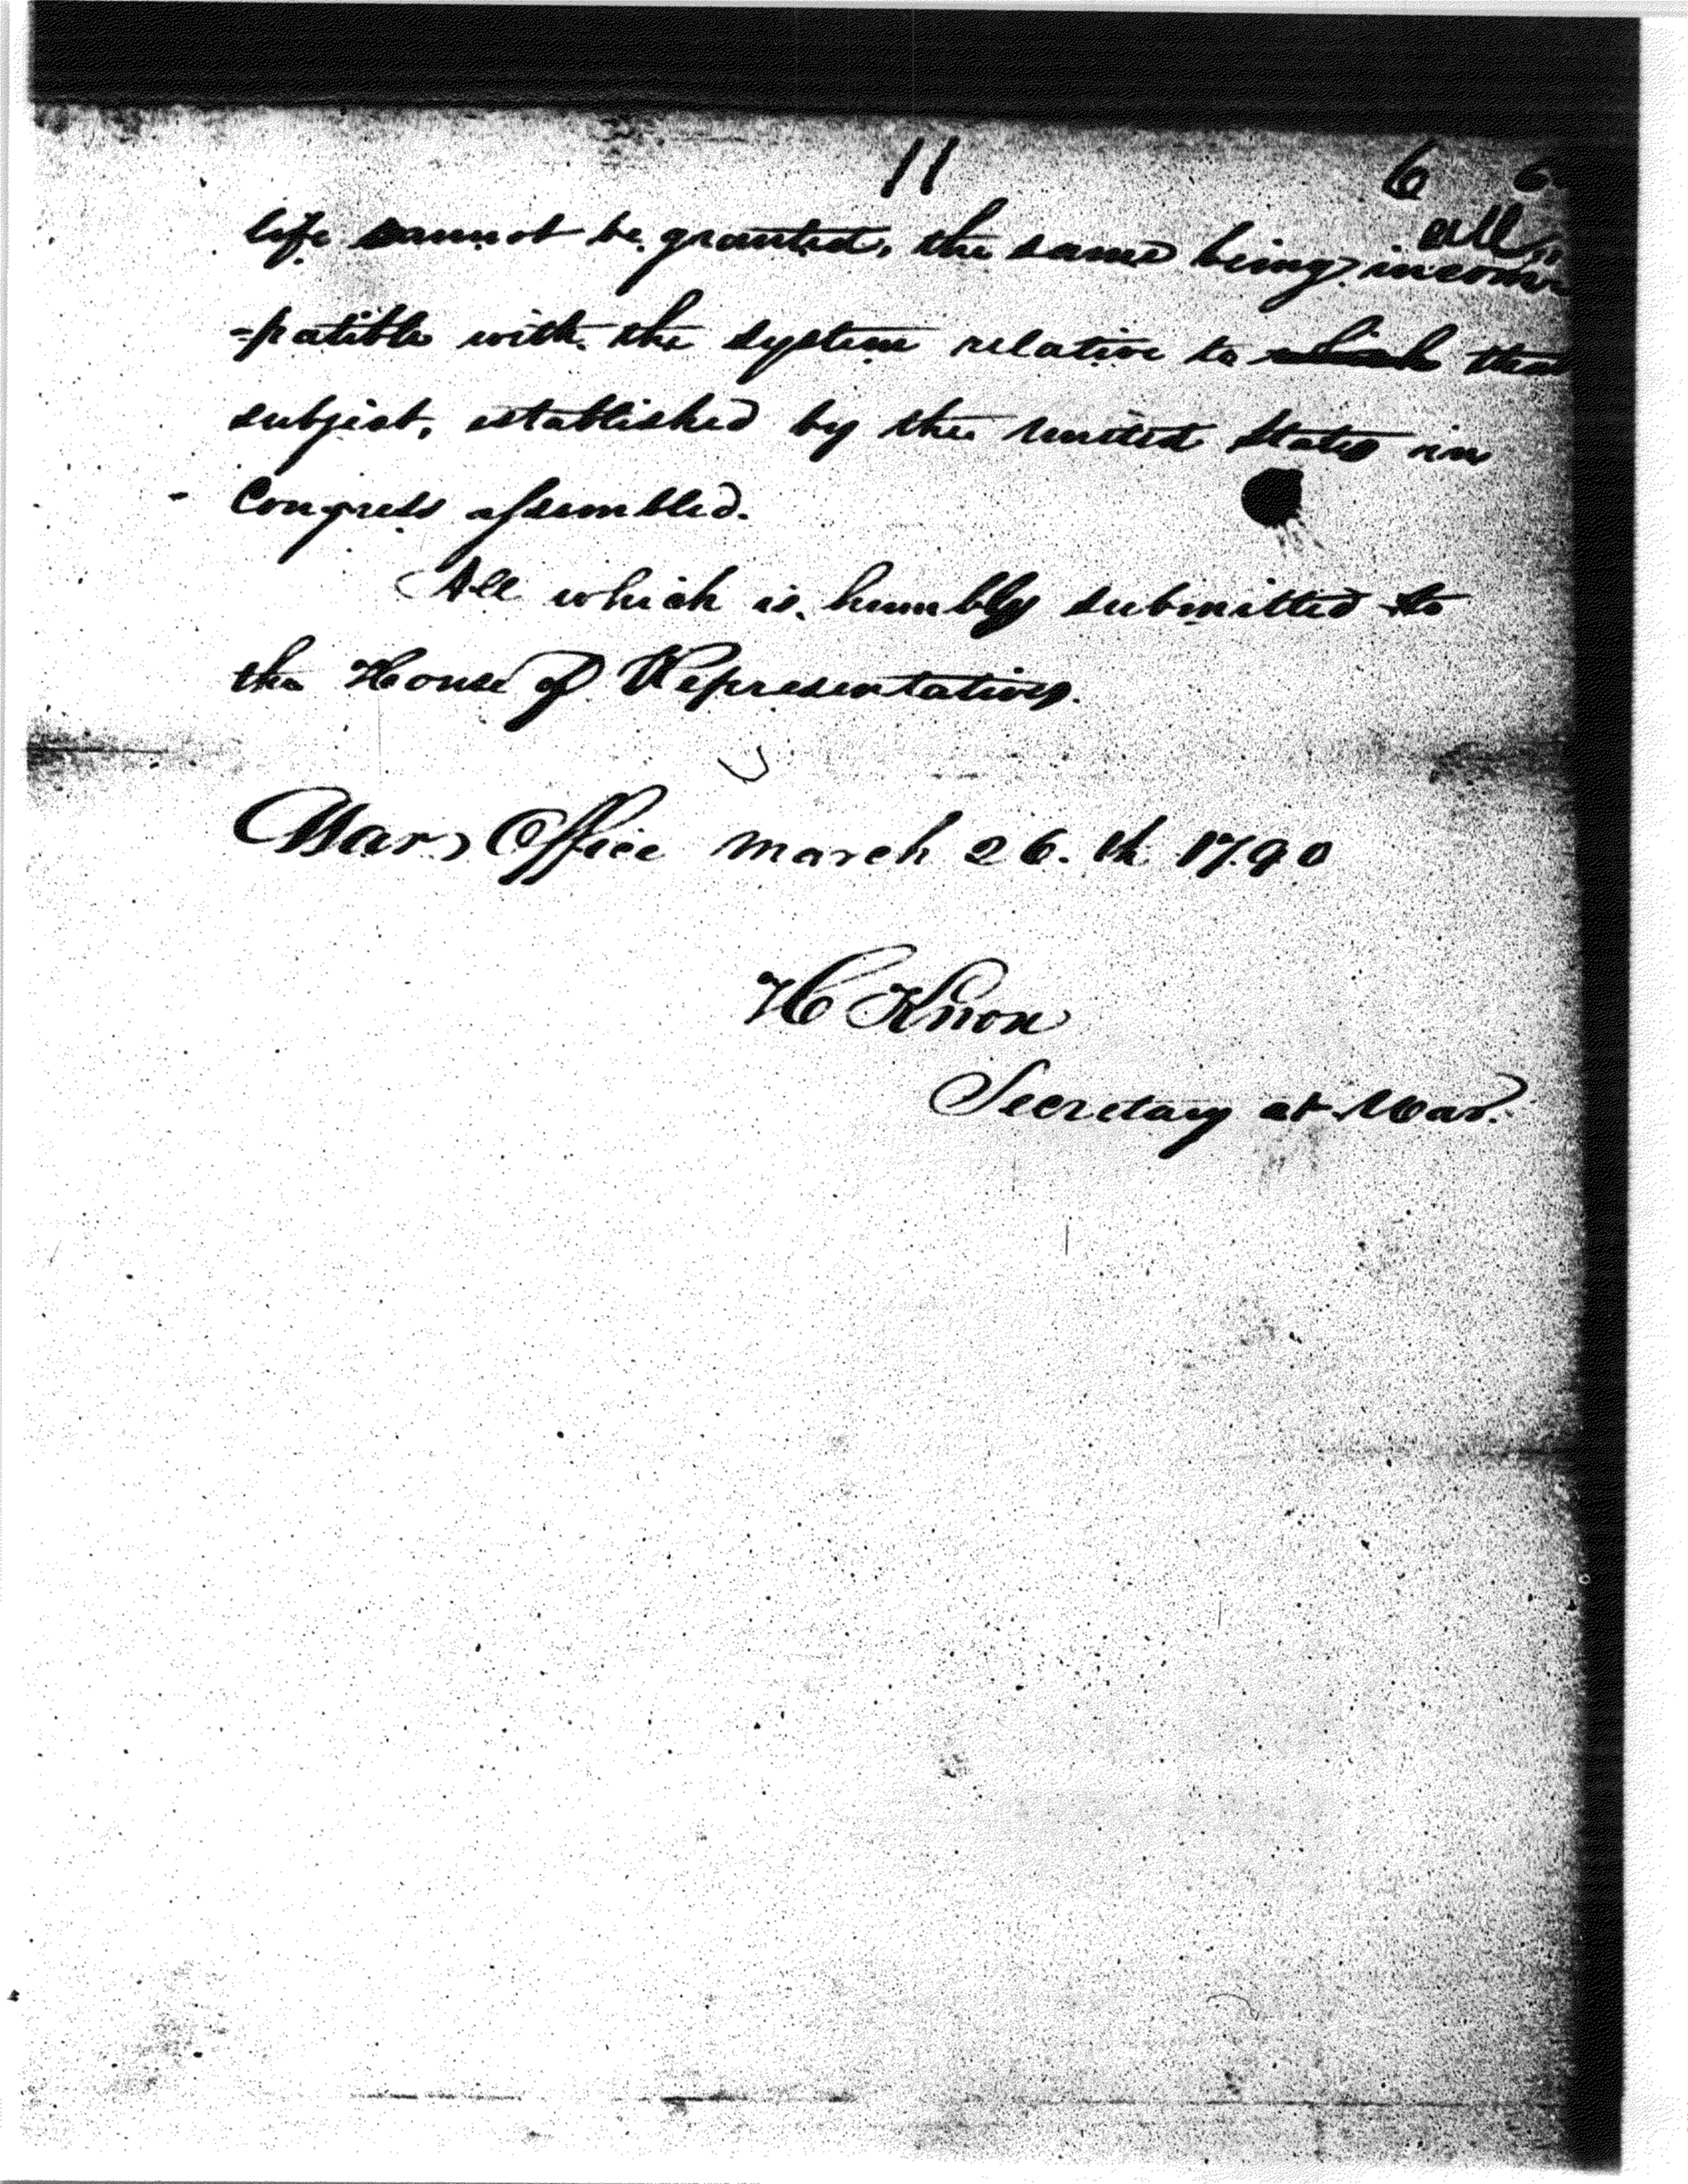 11 6 6
all
life cannot be granted, the same being incom
=patible with the system relative to which that
subject, established by the United States in
Congress assembled.
All which is humbly submitted to
the House of Representatives.
War Office March 26.th 1790
H Knox
Secretary at War.